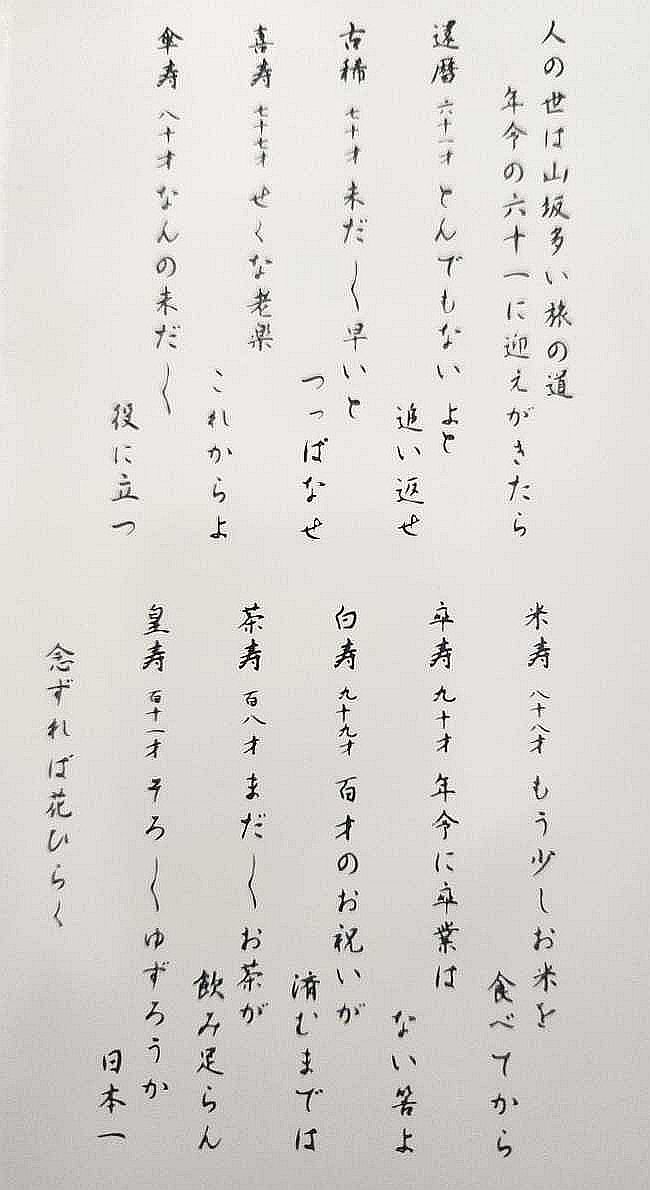 人の世は山坂多い旅の道
年令の六十一に迎えがきたら
還暦 六十一才 とんでもないよと
追い返せ
古稀 七十才 未だ〱早いと
つっぱなせ
喜寿 七十七才 せくな老楽
これからよ
傘寿 八十才 なんの未だ〱
役に立つ
米寿 八十八才 もう少しお米を
食べてから
卒寿 九十才 年令に卒業は
ない筈よ
白寿 九十九才 百才のお祝いが
済むまでは
茶寿 百八才 まだ〱お茶が
飲み足らん
皇寿 百十一才 そろ〱ゆずろうか
日本一
念ずれば花ひらく